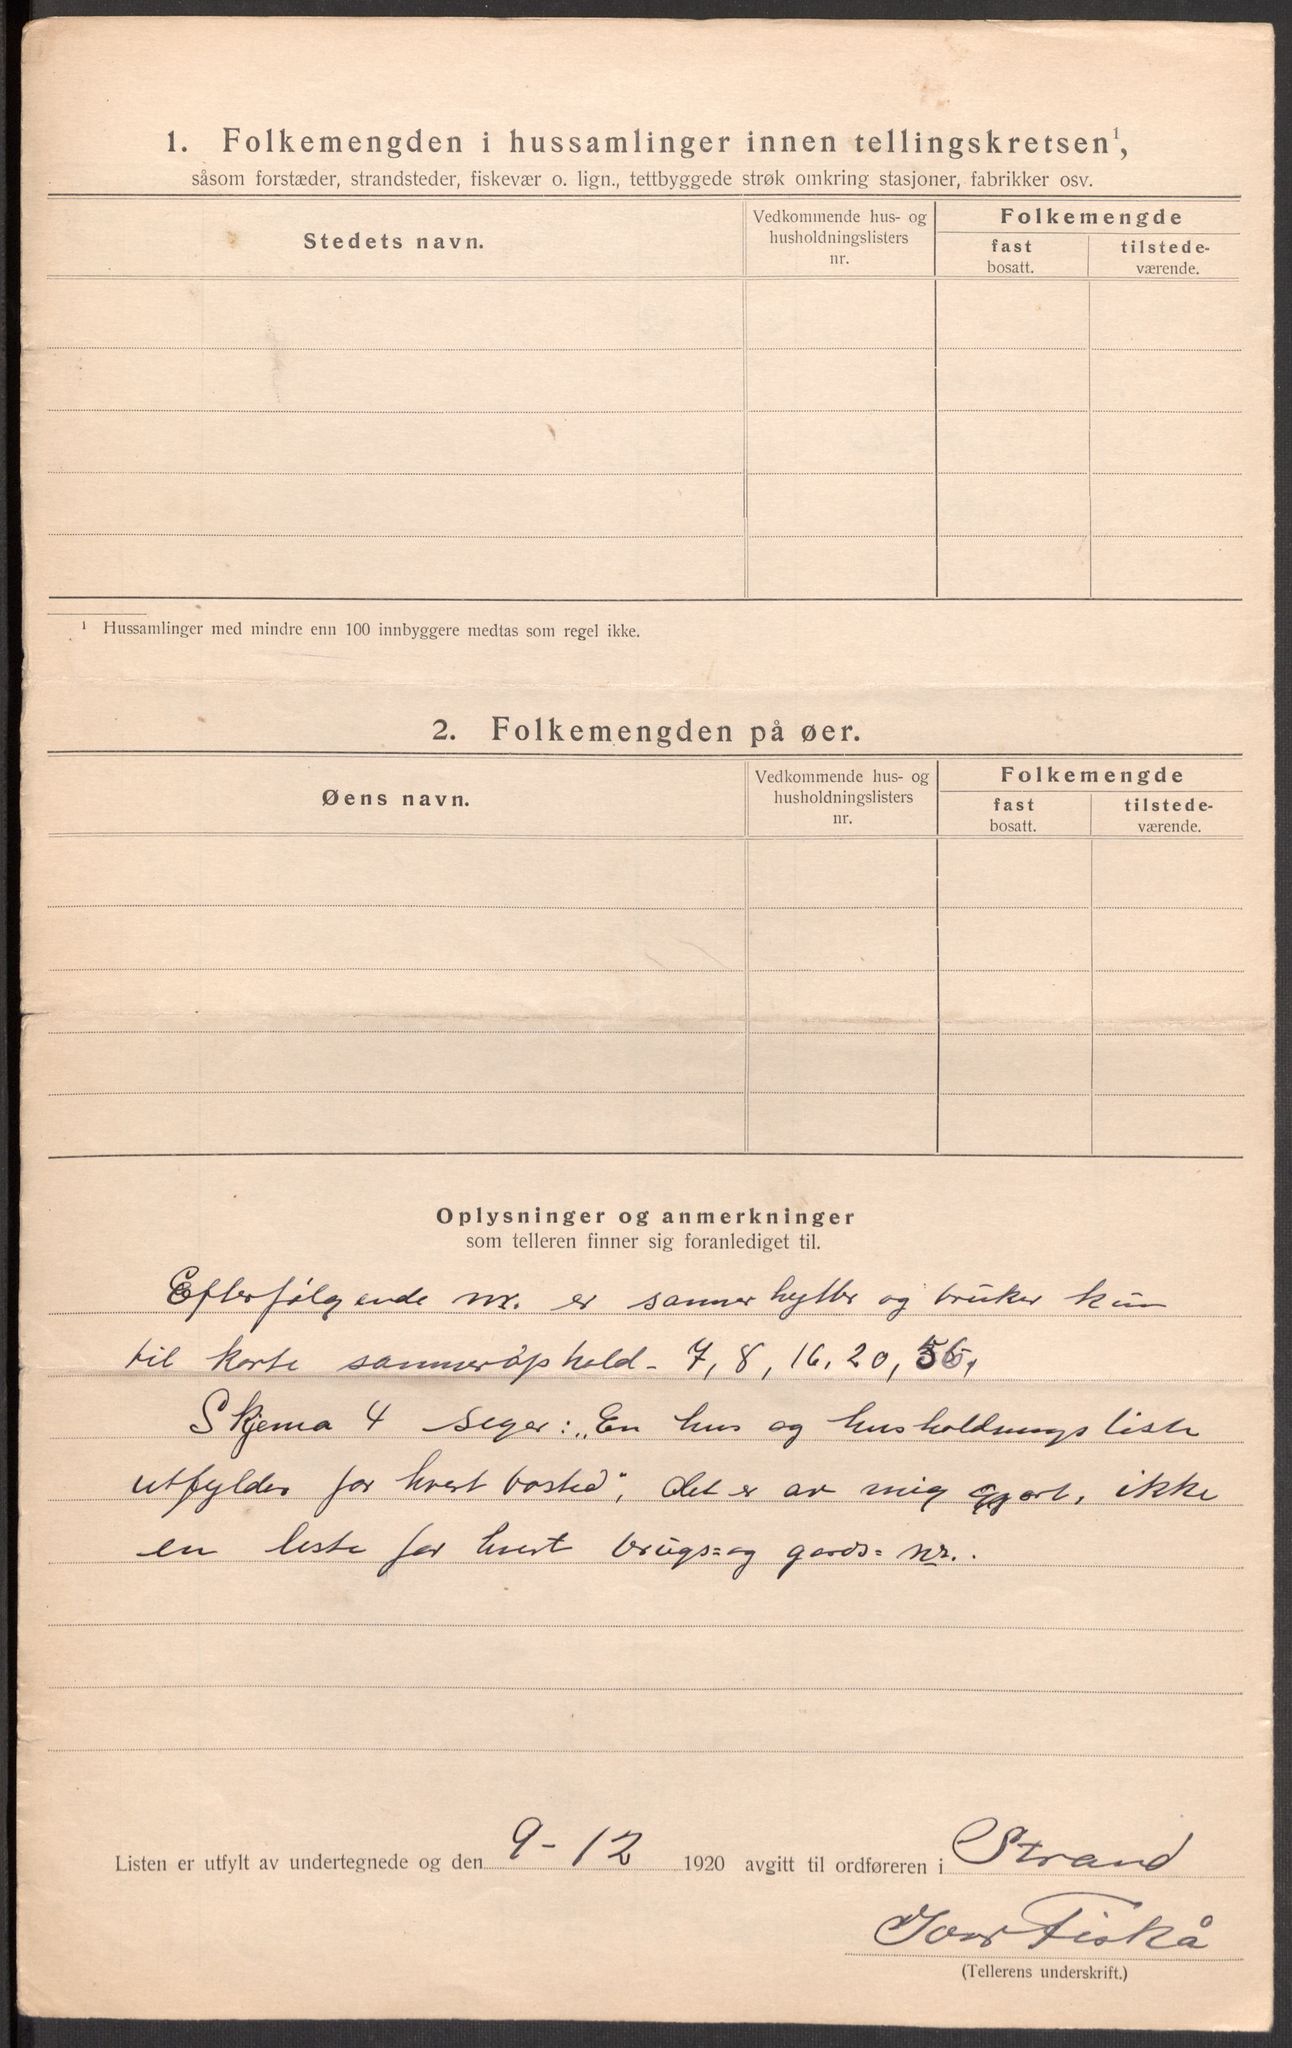 1. Folkemengden i hussamlinger innen tellingskretsen¹,
såsom forstæder, strandsteder, fiskevær o. lign., tettbyggede strøk omkring stasjoner, fabrikker osv.
Stedets navn.
Vedkommende hus- og
husholdningslisters
nr.
Folkemengde
fast
bosatt.
tilstede-
værende.
¹ Hussamlinger med mindre enn 100 innbyggere medtas som regel ikke.
2. Folkemengden på øer.
Øens navn.
Vedkommende hus- og
husholdningslisters
nr.
Folkemengde
fast
bosatt.
tilstede-
værende.
Oplysninger og anmerkninger
som telleren finner sig foranlediget til.
Efterfølgende nr. er sommerhytter og bruker kun
til korte sommerophold - 7, 8, 16, 20,
Skjema 4 seger: „En hus og husholdnings liste
utfyldes for hvert bosted", det er av mig gjort, ikke
en liste for hvert brugs= og gards= nr..
Listen er utfylt av undertegnede og den 9-12 1920 avgitt til ordføreren i Strand
Fiskå
(Tellerens underskrift.)